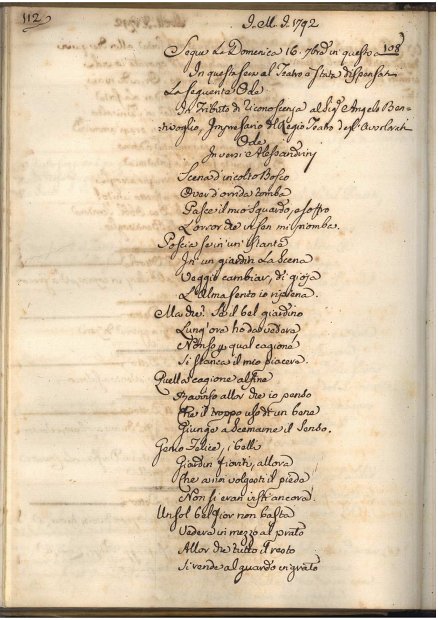 112
J. M. J. 1792
Segue La Domenica 16. 7bre in questo a 108
In questa sera al Teatro è stata dispensata
La seguente Ode.
In Tributo di riconoscenza al Sigr Angelo Ben-
tivoglio, Impresario del Regio Teatro degl' Avvalorati
Ode
In versi Alessandrini
Scena d'incolto Bosco
Over d'orrida tomba
Pasce il mio Sguardo, e soffro
L'orror che in sen mi piomba.
Poscia se in un' istante
In un giardin La Scena
Veggio cambiar, di gioja
L'alma sento io ripiena.
Ma che? Se il bel giardino
Lung' ora ho da vedere
Non so p qual cagione
Si stanca il mio piacere.
Quella cagione alfine
Ravviso allor che io penso
Che il troppo uso di un bene
Giunge a Scemarne il Senso.
Genio Felice, i belli
Giardin fioriti, allora
Che a noi volgesti il piede
Non si eran visti ancora.
Un sol bel fior non basta
Vedere in mezzo al prato
Allor che tutto il resto
Si rende al guardo ingrato